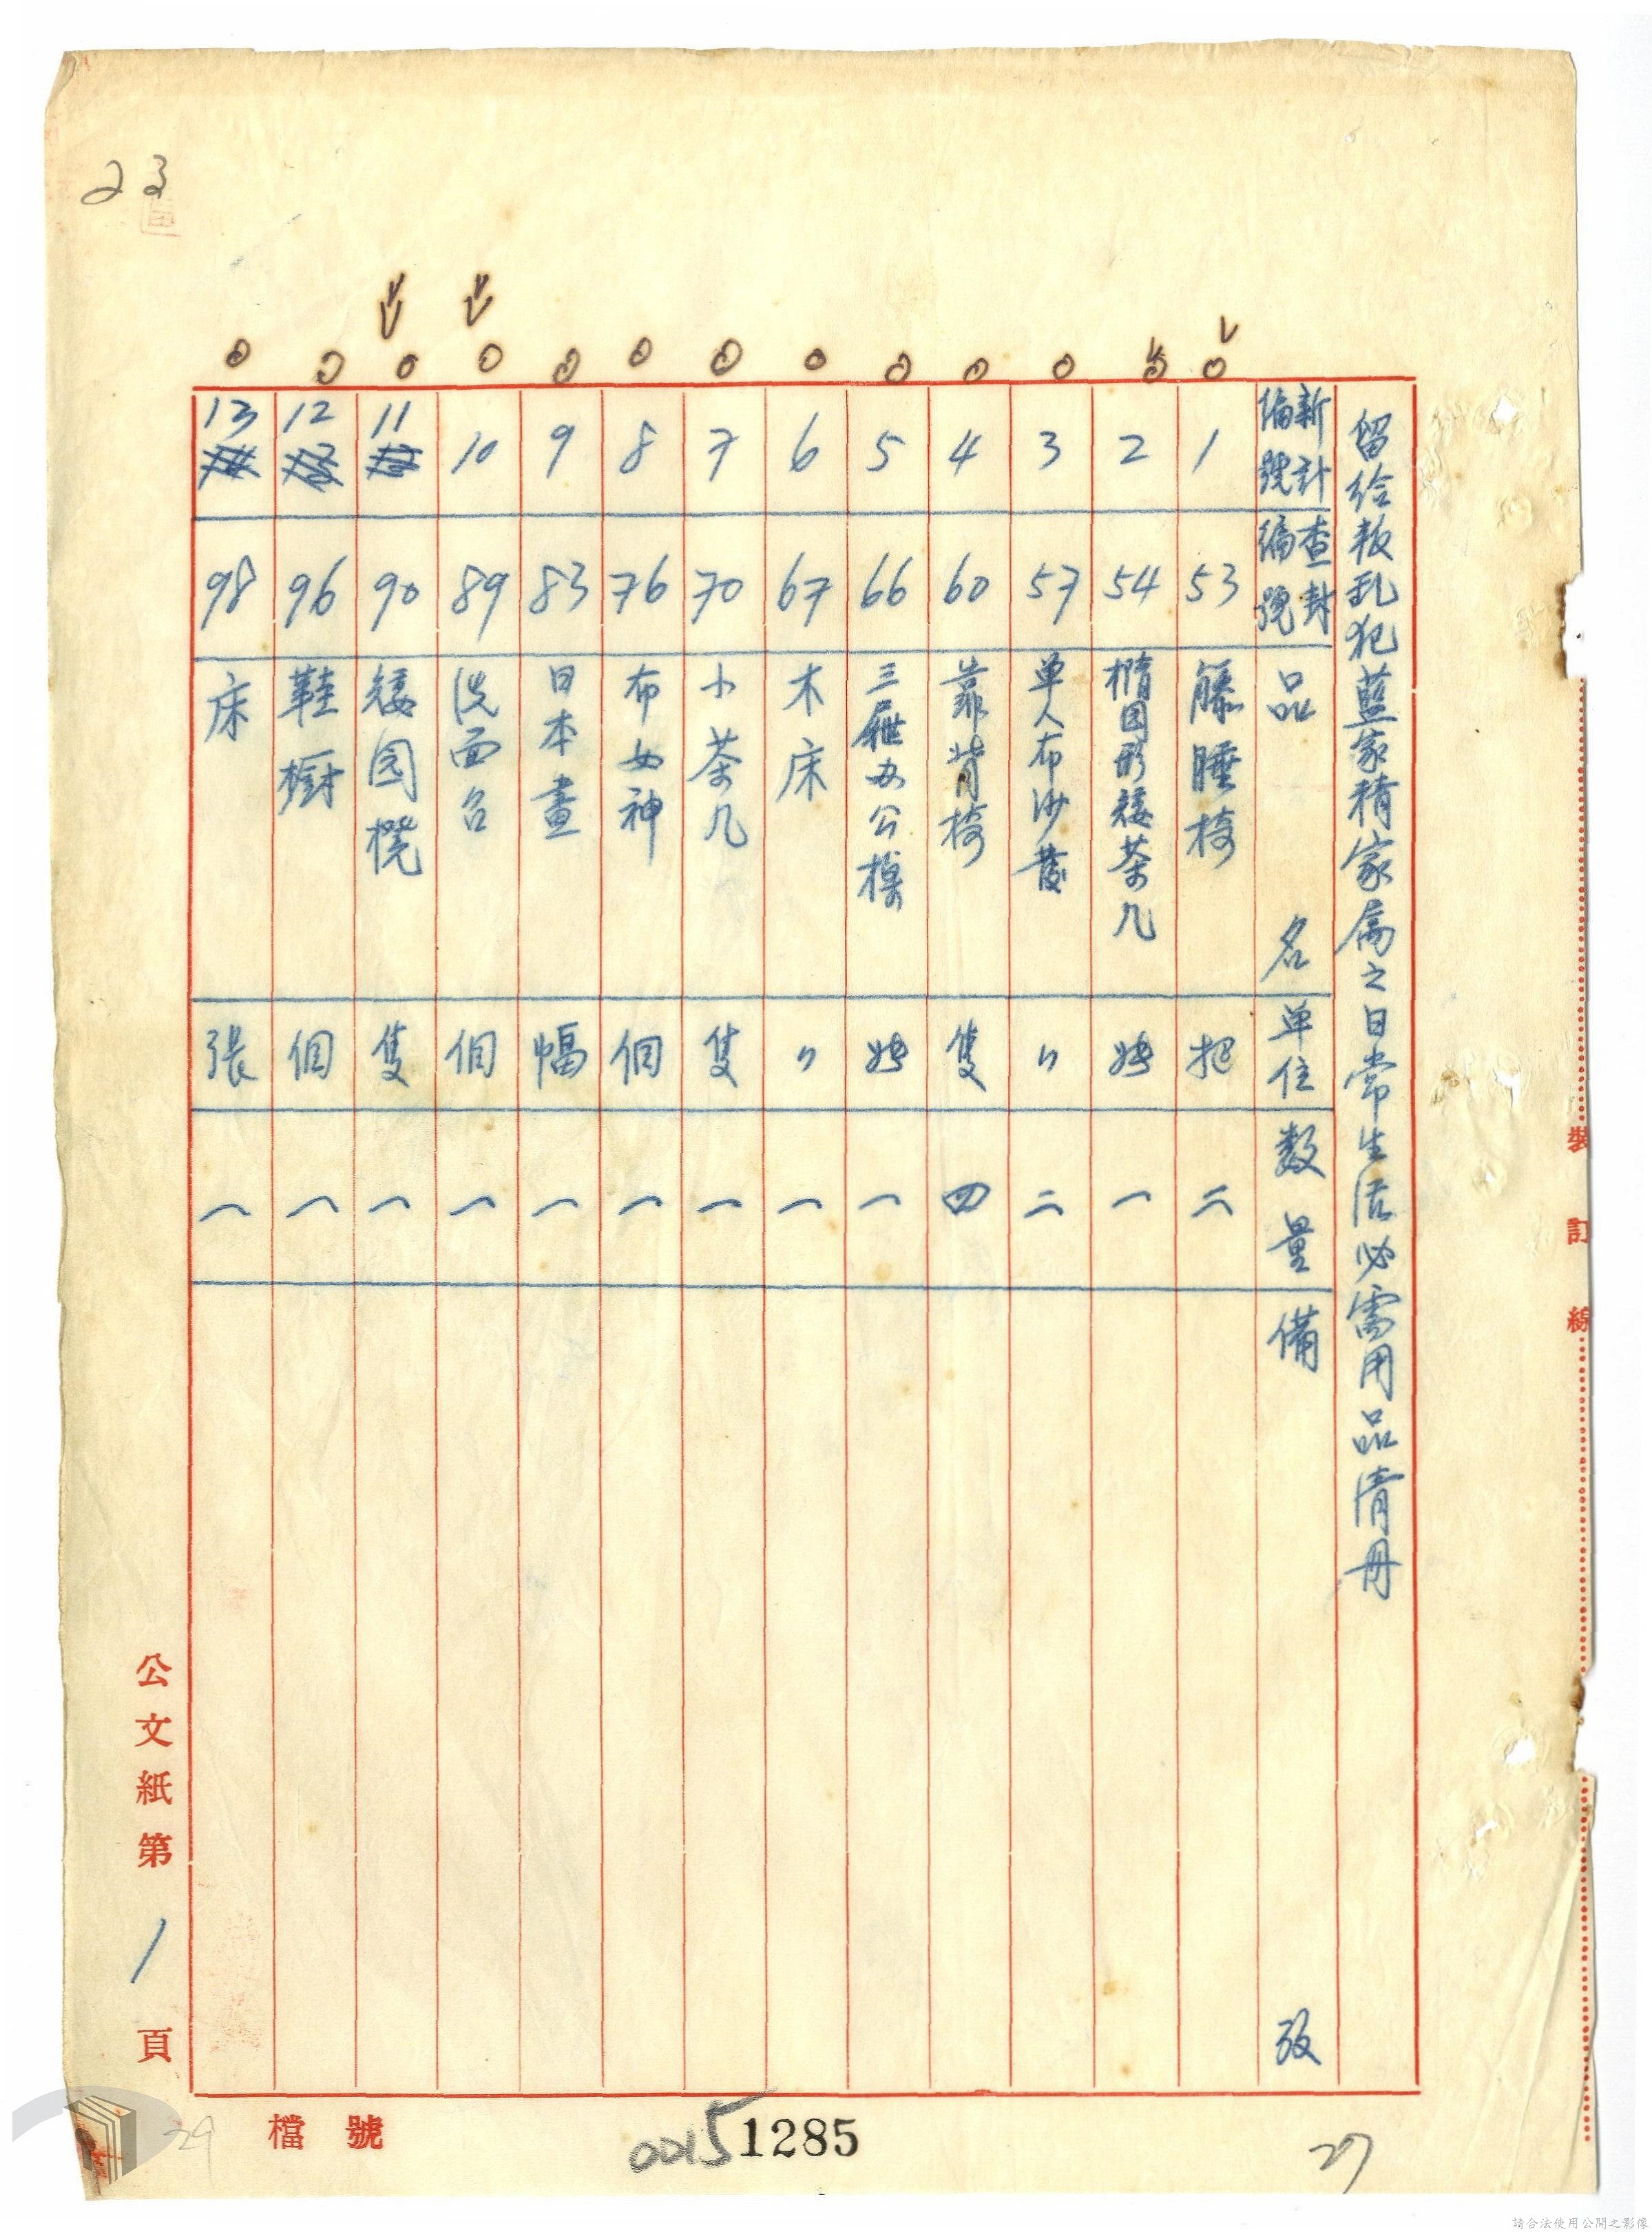 23
留给叛乱犯藍家精家属之日常生活必需用品清册
新計編號 查封編號 品名 单位 数量 備攷
1 53 籐睡椅 把 二
2 54 橢圆形矮茶几 张 一
3 57 单人布沙發 〃 二
4 60 靠背椅 隻 四
5 66 三屜办公棹 张 一
6 67 木床 〃 一
7 70 小茶几 隻 一
8 76 布女神 個 一
9 83 日本畫 幅 一
10 89 洗面台 個 一
11 90 矮圆櫈 隻 一
12 96 鞋橱 個 一
13 98 床 張 一
裝訂線
公文紙第1頁
檔號
0015 1285
27
29
請合法使用公開之影像